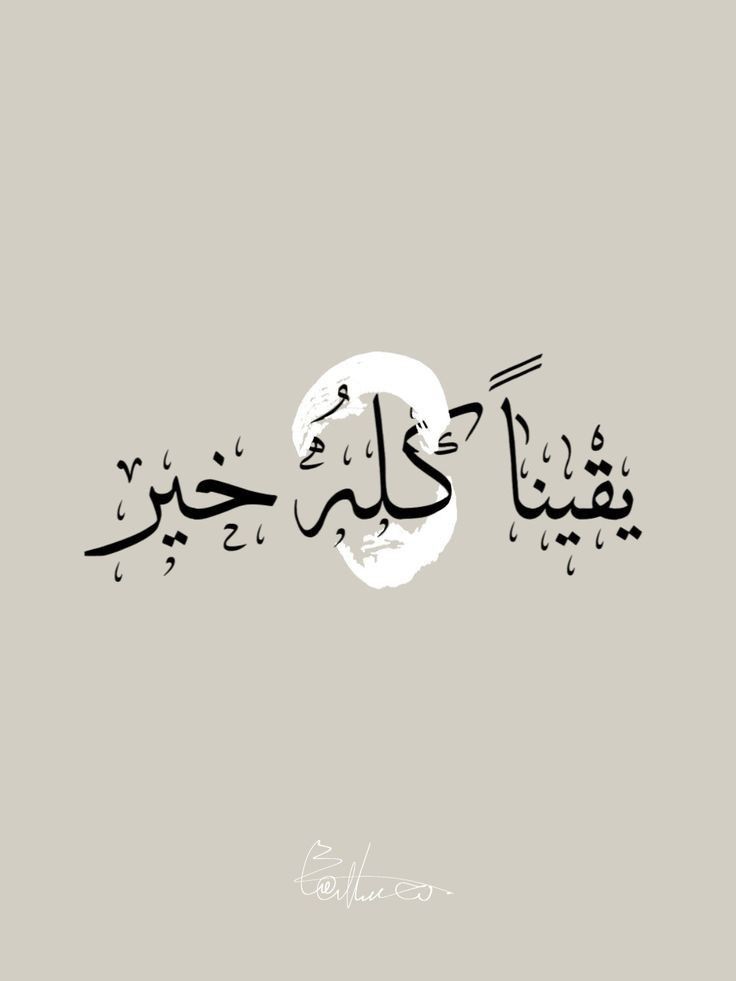 يقيناً كلهُ خير